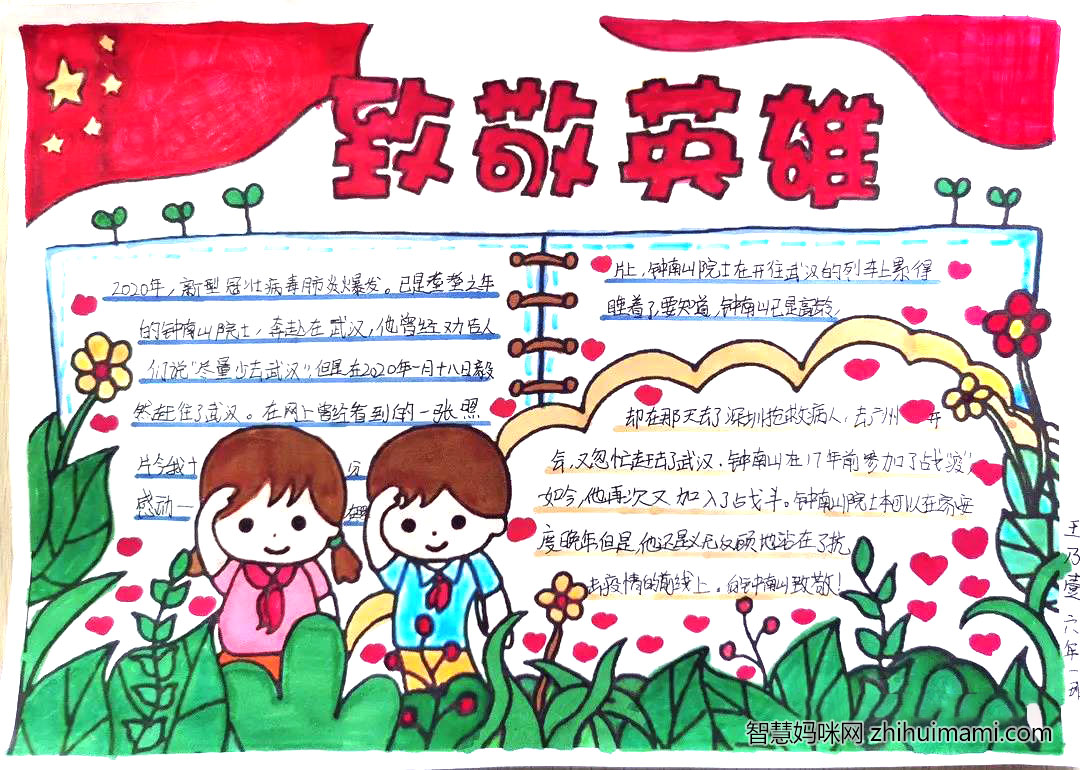 致敬英雄
2020年，新型冠壮病毒肺炎爆发。已是耄耋之年
的钟南山院士，奔赴在武汉，他曾经劝告人
们说"尽量少去武汉"，但是在2020年一月十八日毅
然赶往了武汉。在网上曾经看到的一张照
片令我十
感动一
片上，钟南山院士在开往武汉的列车上累得
睡着了要知道，钟南山已是高龄，
却在那天去了深圳抢救病人，去广州 开
会，又忽忙赶去了武汉。钟南山在17年前参加了战"疫"，
如今，他再次又加入了占戈斗。钟南山院士本可以在家安
度晚年但是，他还是义无反顾地站在了抗
击疫情的前线上。向钟南山致敬！
王乃萱 六年一班
智慧妈咪网 zhihuimami.com